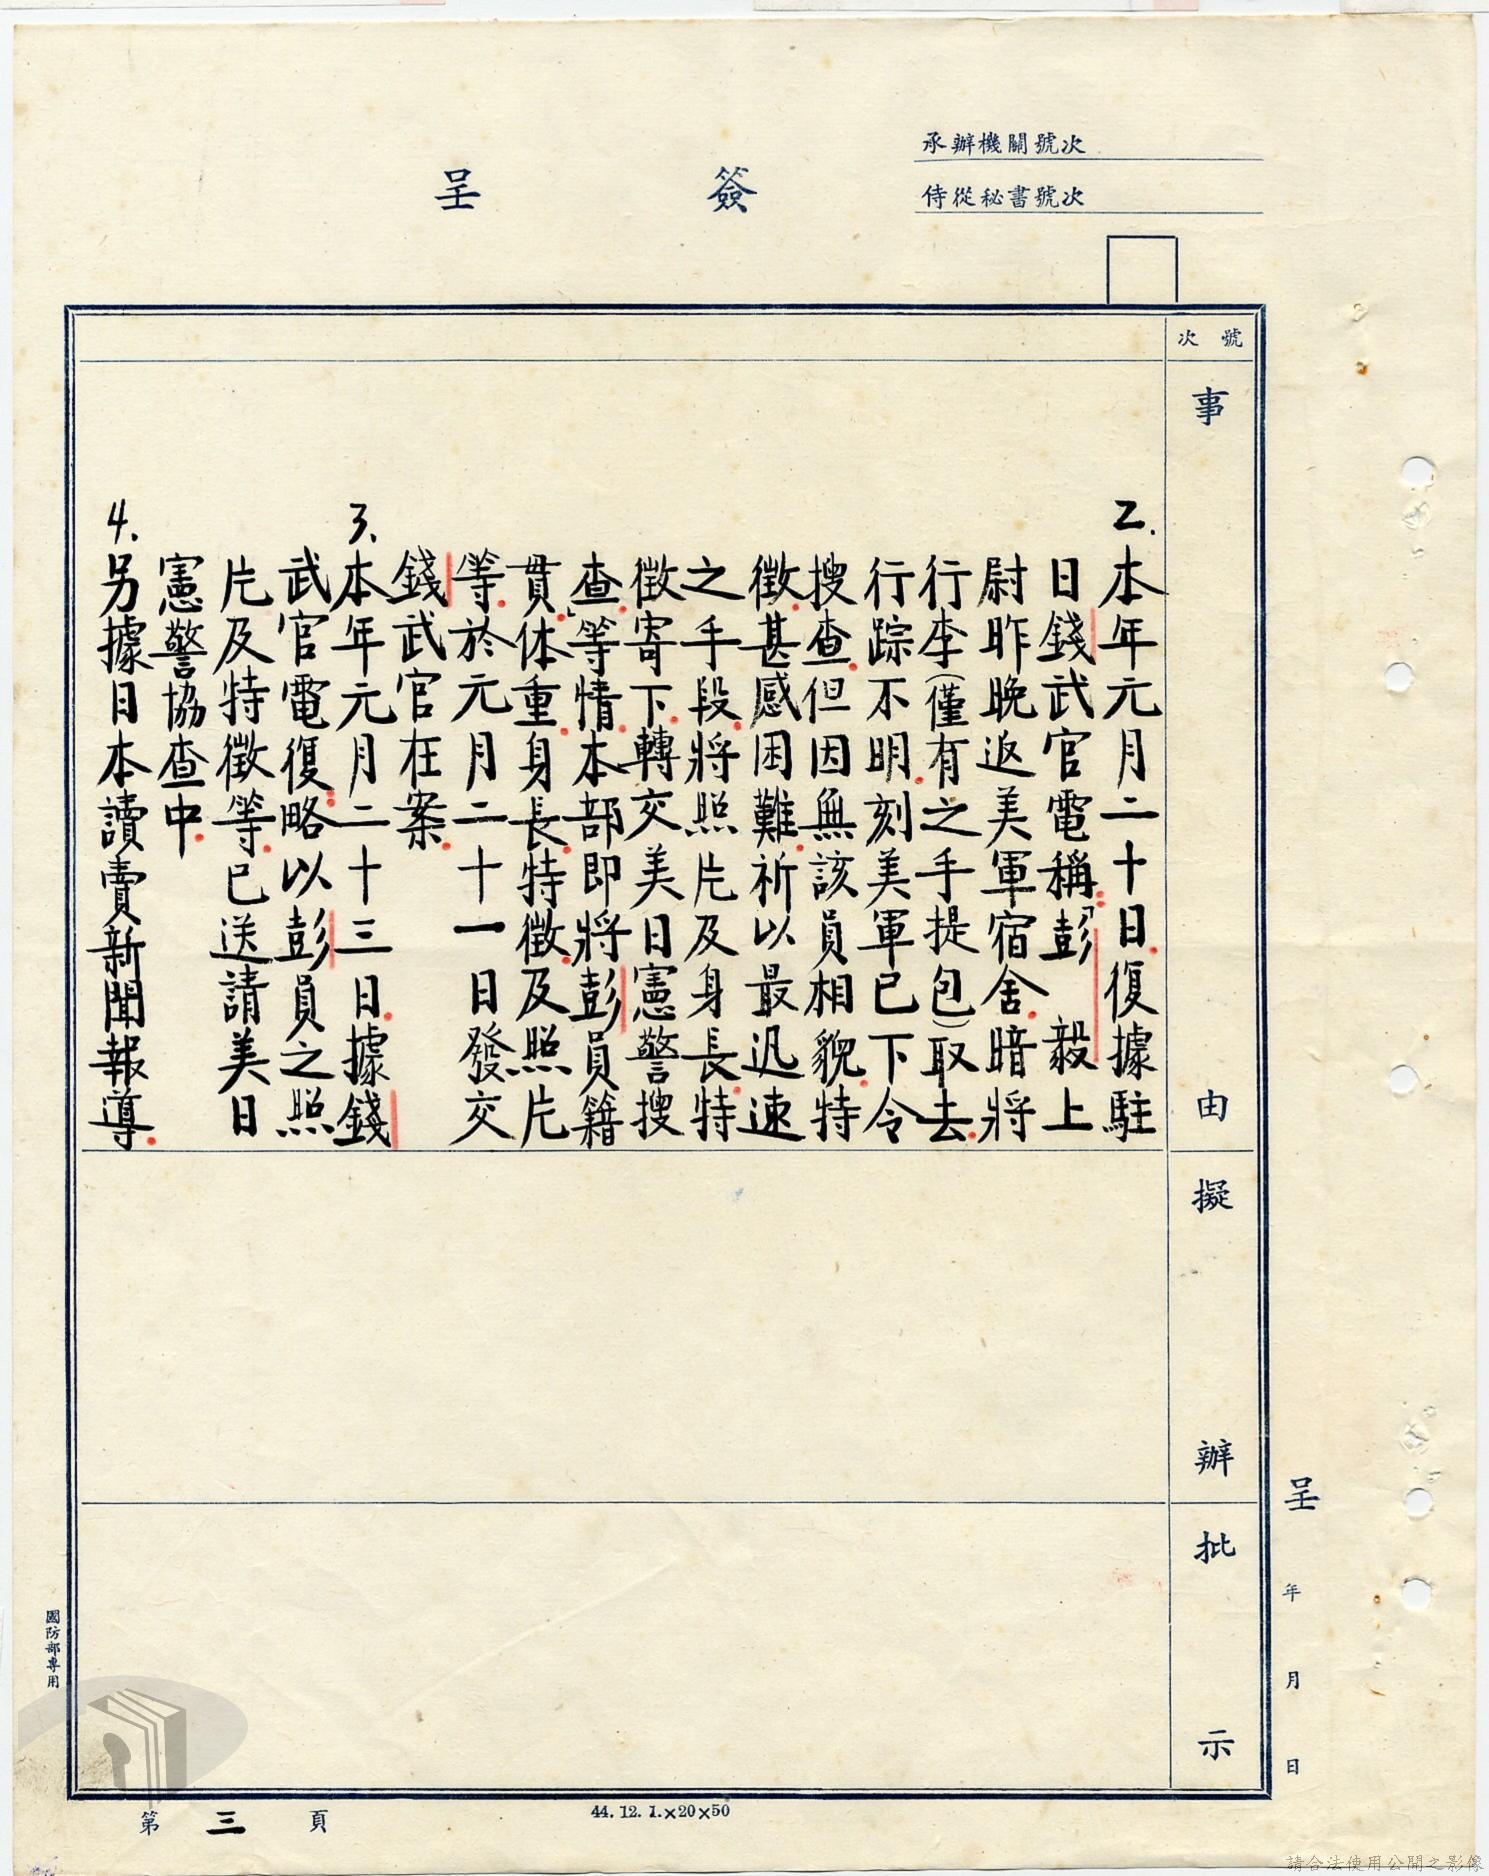 承辦機關號次
侍從秘書號次
簽呈
號次
事由
擬辦
批示
2.本年元月二十日.復據駐
日錢武官電稱:「彭　毅上
尉昨晚返美軍宿舍.暗將
行李(僅有之手提包)取去.
行踪不明.刻美軍已下令
搜查.但因無該員相貌.特
徵.甚感困難.祈以最迅速
之手段.將照片及身長.特
徵寄下.轉交美日憲警搜
查.」等情.本部即將彭員籍
貫.体重.身長.特徵.及照片
等.於元月二十一日發交
錢武官在案.
3.本年元月二十三日.據錢
武官電復:略以彭員之照
片及特徵等.已送請美日
憲警協查中.
4.另據日本讀賣新聞報導.
呈　年　月　日
國防部專用
第三頁
44.12.1.×20×50
請合法使用公開之影像